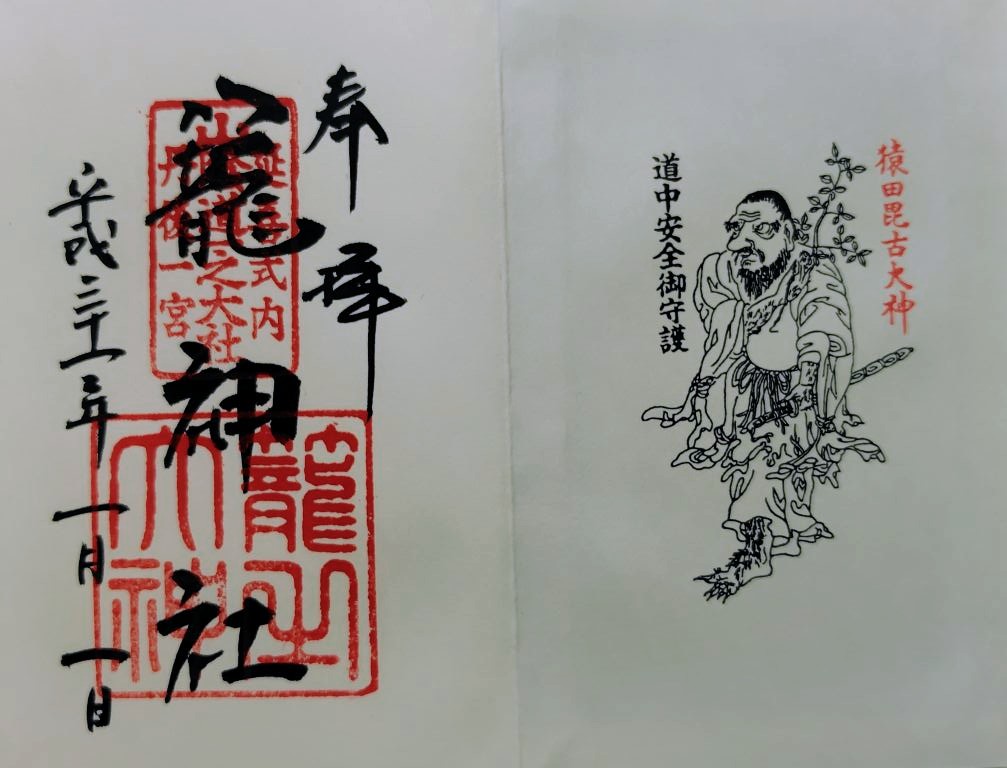 猿田毘古大神
道中安全御守護
奉拝
籠神社
平成三十一年一月一日
延喜式内
山陰道之大社
丹後一宮
籠之
大神